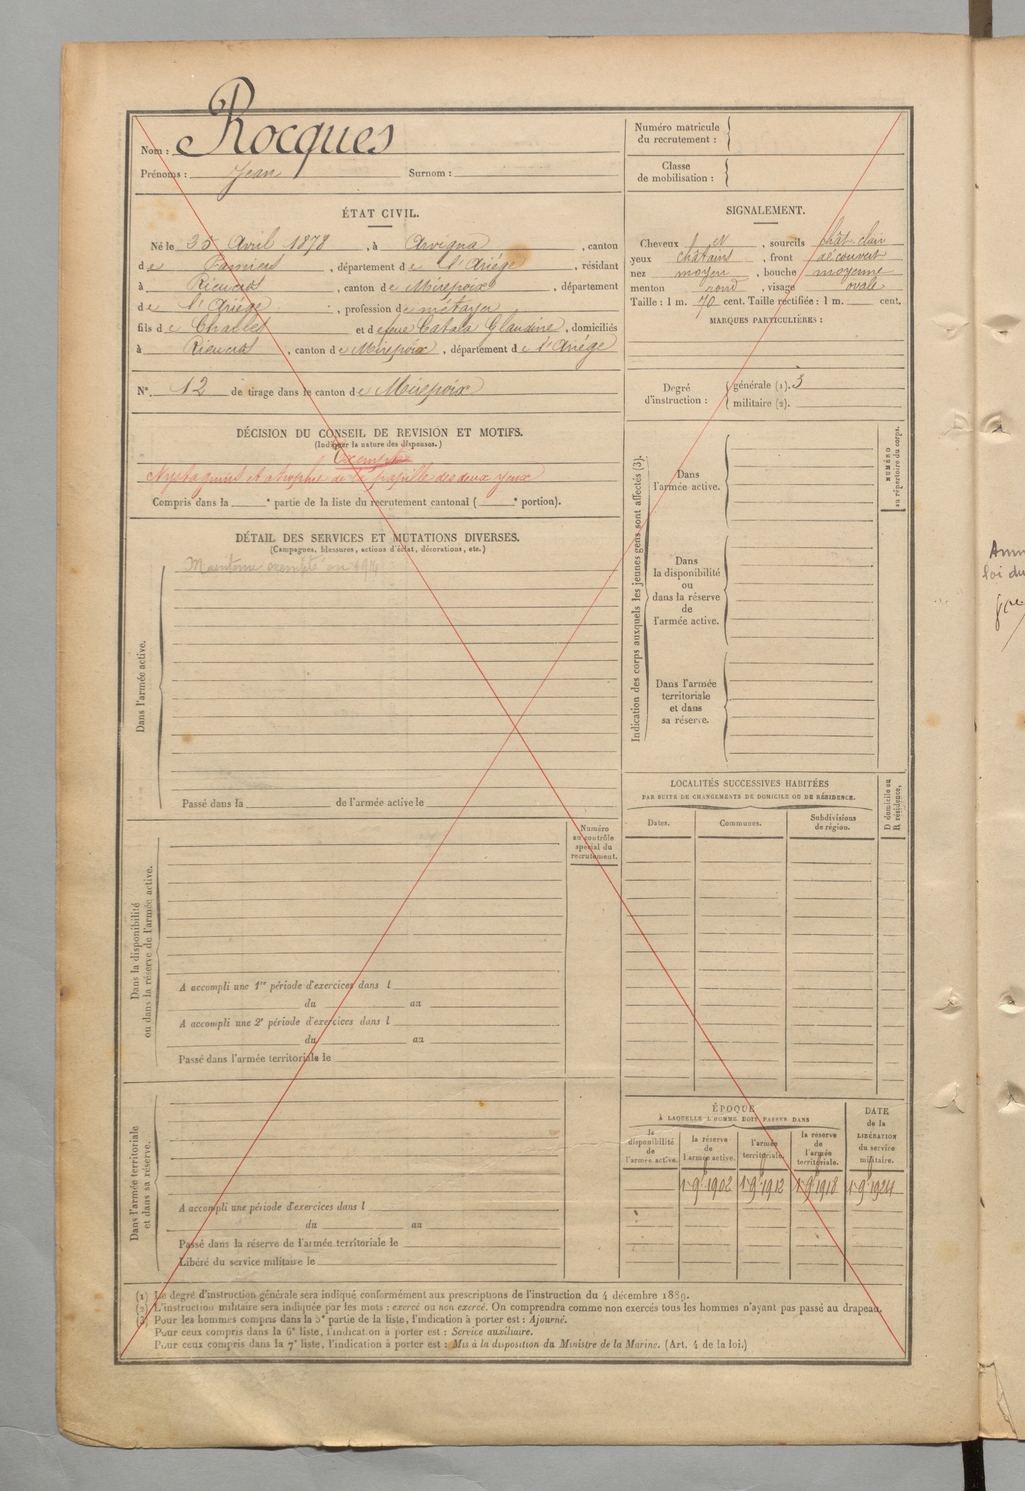 Nom : Rocques
Prénoms : Jean Surnom :
Numéro matricule
du recrutement :
Classe
de mobilisation :
ÉTAT CIVIL.
Né le 25 Avril 1878, à Arvigna, canton
de Pamiers, département de l'Ariége, résidant
à Rieucros, canton de Mirepoix, département
de l'Ariége, profession de métayer
fils de Charles et de feue Catala Glaudine, domiciliés
à Rieucros, canton de Mirepoix, département de l'Ariége
N° 12 de tirage dans le canton de Mirepoix
SIGNALEMENT.
Cheveux, sourcils chât. clair
yeux châtains, front découvert
nez moyen, bouche moyenne
menton rond, visage ovale
Taille : 1 m. 70 cent. Taille rectifiée : 1 m. cent.
MARQUES PARTICULIÈRES :
Degré
d'instruction :
générale (1). 3
militaire (2).
DÉCISION DU CONSEIL DE REVISION ET MOTIFS.
(Indiquer la nature des dispenses.)
Exempté
Nystagmus et atrophie de la papille des deux yeux
Compris dans la e partie de la liste du recrutement cantonal ( e portion).
DÉTAIL DES SERVICES ET MUTATIONS DIVERSES.
(Campagnes, blessures, actions d'éclat, décorations, etc.)
Maintenu exempté en 1914
Dans l'armée active.
Passé dans la de l'armée active le
Indication des corps auxquels les jeunes gens sont affectés (3).
Dans
l'armée active.
Dans
la disponibilité
ou
dans la réserve
de
l'armée active.
Dans l'armée
territoriale
et dans
sa réserve.
NUMÉRO
au répertoire du corps.
LOCALITÉS SUCCESSIVES HABITÉES
PAR SUITE DE CHANGEMENTS DE DOMICILE OU DE RÉSIDENCE.
Dates.
Communes.
Subdivisions
de région.
D domicile ou
R résidence.
Numéro
au contrôle
spécial du
recrutement.
Dans la disponibilité
ou dans la réserve de l'armée active.
A accompli une 1re période d'exercices dans l
du au
A accompli une 2e période d'exercices dans l
du au
Passé dans l'armée territoriale le
Dans l'armée territoriale
et dans sa réserve.
A accompli une période d'exercices dans l
du au
Passé dans la réserve de l'armée territoriale le
Libéré du service militaire le
ÉPOQUE
À LAQUELLE L'HOMME DOIT PASSER DANS
la
disponibilité
de
l'armée active.
la réserve
de
l'armée active.
l'armée
territoriale.
la réserve
de
l'armée
territoriale.
DATE
de la
LIBÉRATION
du service
militaire.
1er 9bre 1902 1er 9bre 1912 1er 9bre 1918 1er 9bre 1924
(1) Le degré d'instruction générale sera indiqué conformément aux prescriptions de l'instruction du 4 décembre 1889.
(2) L'instruction militaire sera indiquée par les mots : exercé ou non exercé. On comprendra comme non exercés tous les hommes n'ayant pas passé au drapeau.
(3) Pour les hommes compris dans la 5e partie de la liste, l'indication à porter est : Ajourné.
Pour ceux compris dans la 6e liste, l'indication à porter est : Service auxiliaire.
Pour ceux compris dans la 7e liste, l'indication à porter est : Mis à la disposition du Ministre de la Marine. (Art. 4 de la loi.)
loi du